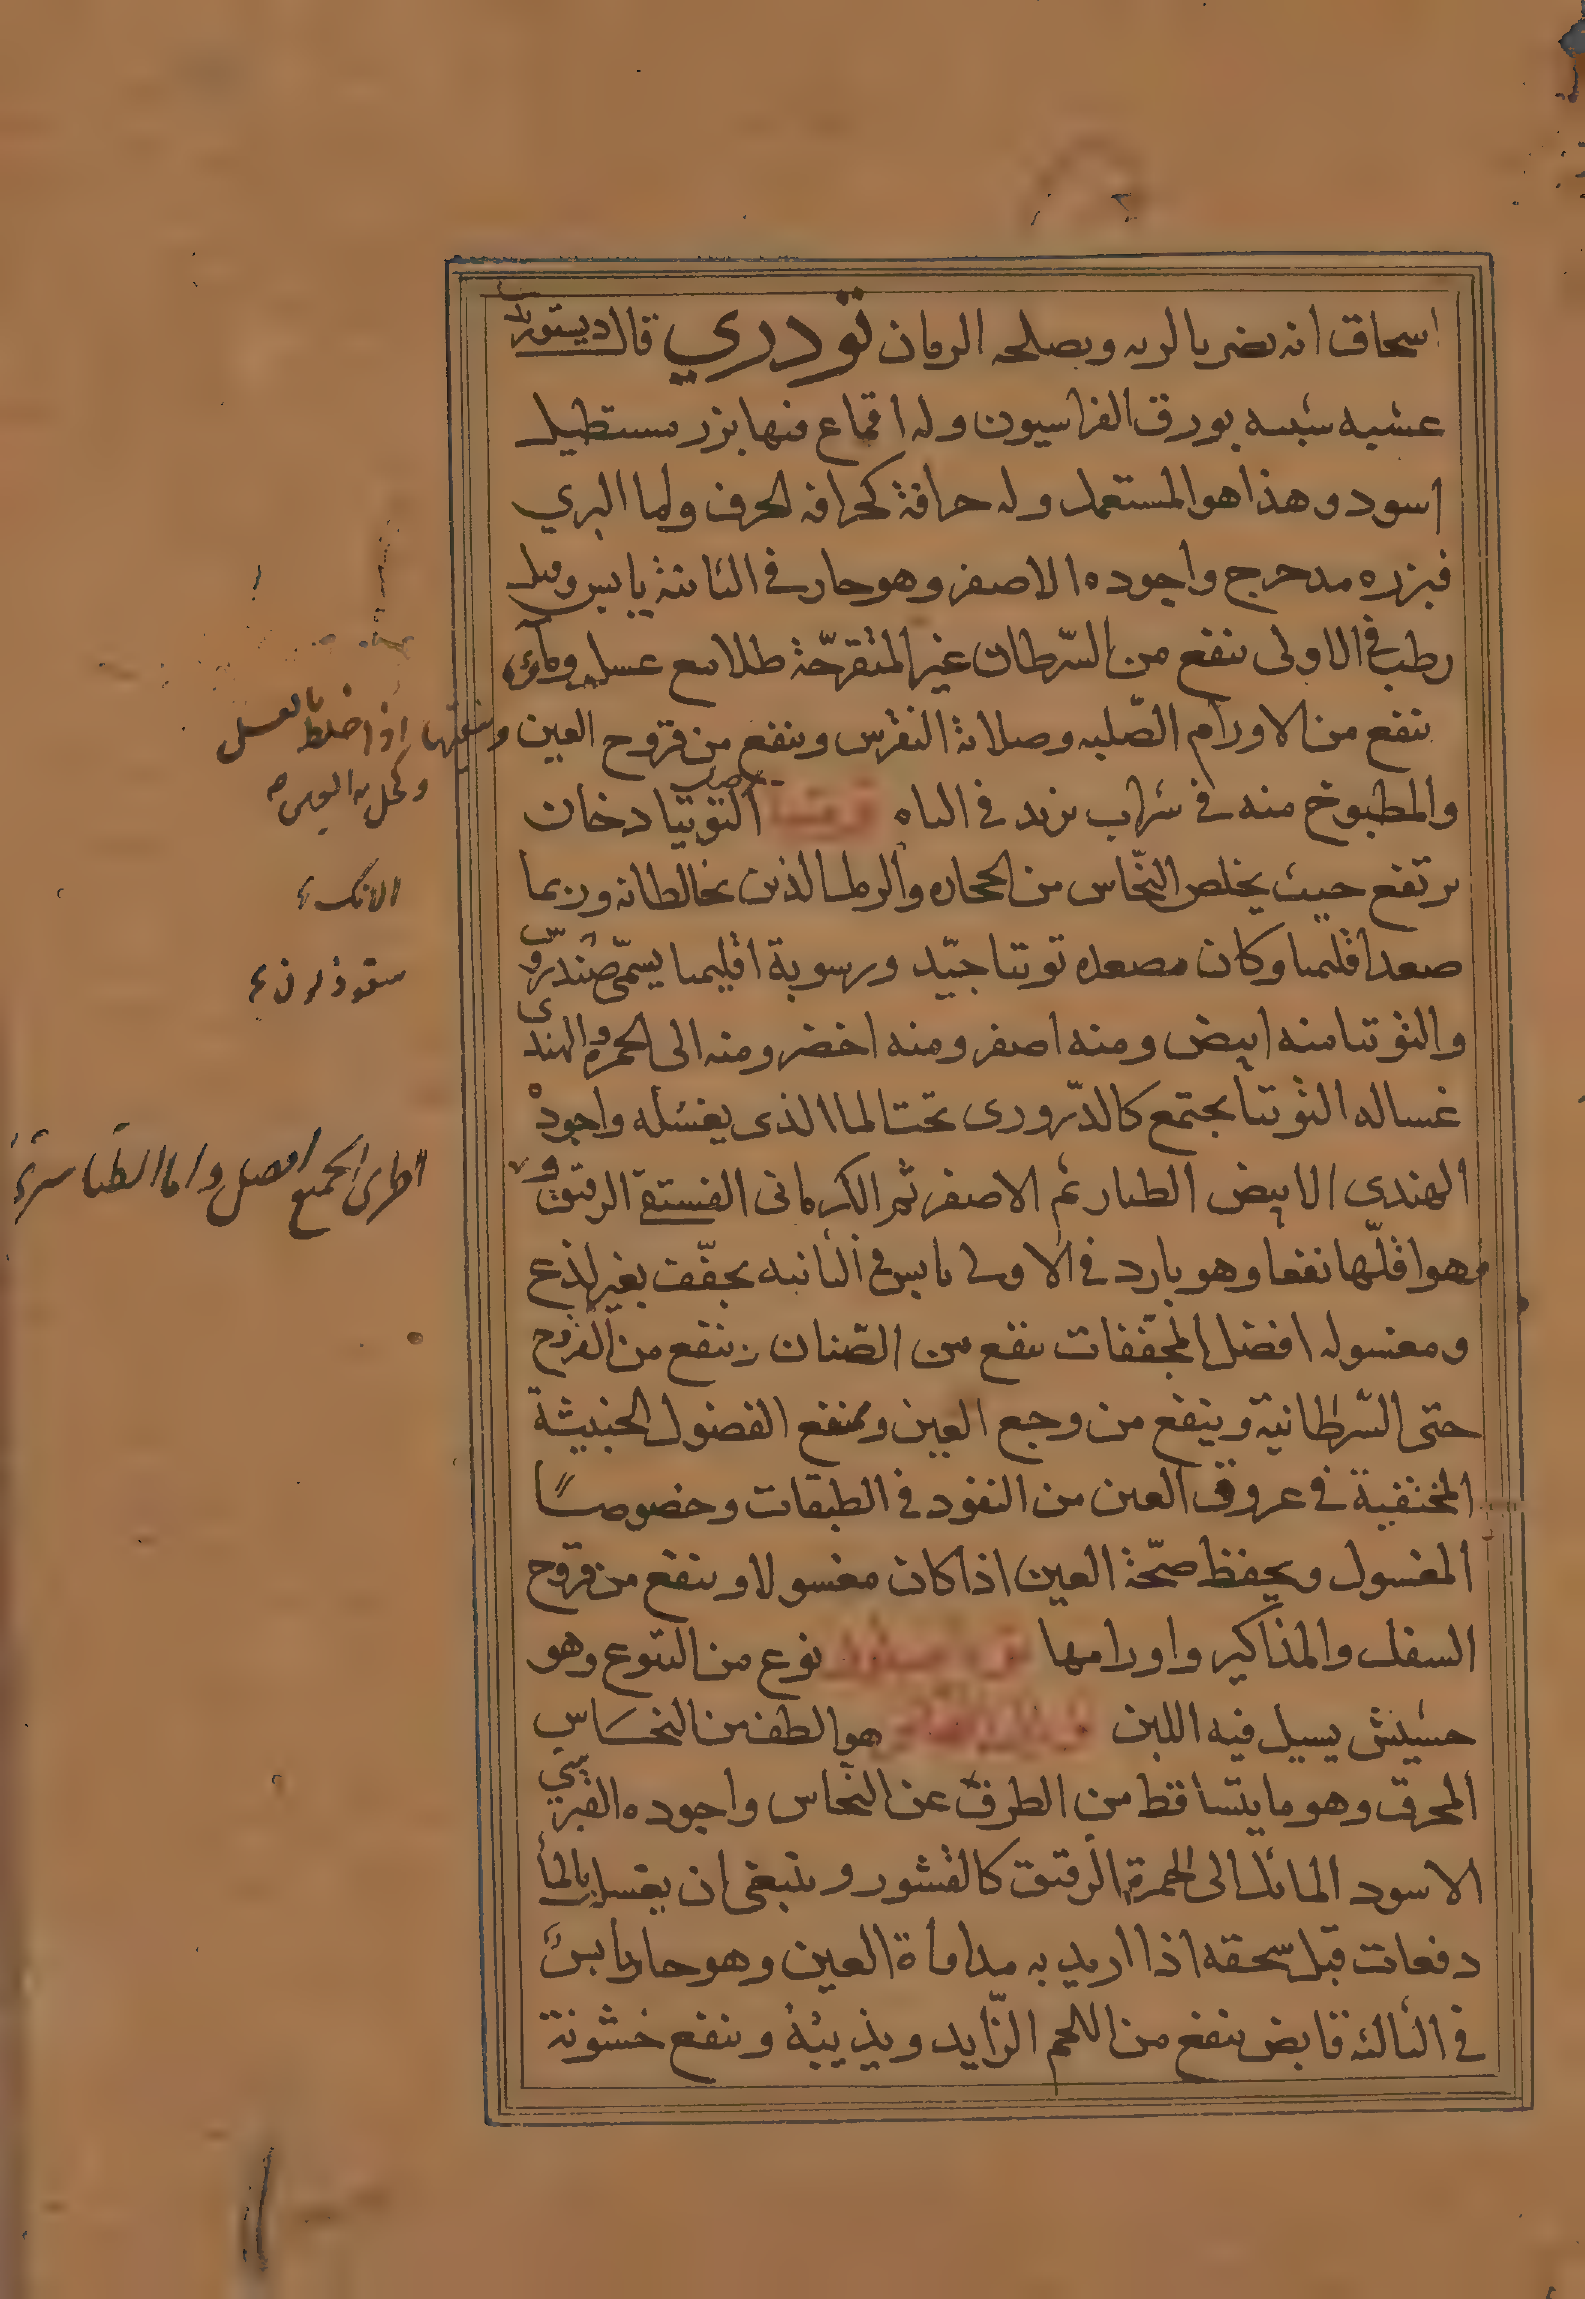 اسحاق انه يضر بالريه ويصلحه الرمان تودري قال ديستوريد
عشبه شبيه بورق الفراسيون وله اقماع فيها بزر مستطيل
اسود وهذا هو المستعمل وله حرافة كحرافه الحرف واما البري
فبزره مدحرج واجوده الاصفر وهو حار في الثانية يابس وقيل
رطب في الاولى ينفع من السّرطان غير المتقرحّة طلا مع عسل وماء
ينفع من الاورام الصّلبه وصلابة النقرس وينفع من قروح العين وينقيها اذا خلط بالعسل
وكحل به العين
والمطبوخ منه في شراب يزيد في الباه التوتيا دخان
يرتفع حيث يخلص النّحاس من الحجاره والرصاص الذين يخالطانه وربما
الانك
صعد اقليميا وكان مصعده توتيا جيّد ورسوبة اقليميا يسمّى
والتوتيا منه ابيض ومنه اصفر ومنه اخضر ومنه الى الحمرة والهندي
غساله التوتيا يجتمع كالدّروري تحت الما الذي يغسله واجوده
الهندي الابيض الطيار ثم الاصفر ثم الكرماني الفستقي الرقيق و
اطرى الجميع افضل واما
هو اقلّها نفعا وهو بارد في الاولى يابس في الثانيه يجفّف بغير لذع
ومغسوله افضل المجففات ينفع من الصّنان وينفع من القروح
حتى السّرطانية وينفع من وجع العين ويمنع الفضول الخبيثة
المحتقية في عروق العين من النفود في الطبقات وخصوصًا
المغسول ويحفظ صحّة العين اذا كان مغسولا وينفع من قروح
السفل والمذاكير واورامها نوع من اليتوع وهو
حشيش يسيل فيه اللبن هو الطف من النحاس
المحرق وهو ما يتساقط من الطرق عن النّحاس واجوده القبرسي
الاسود المائل الى الحمرة الرقيق كالقشور وينبغي ان يغسل بالماء
دفعات قبل سحقه اذا اريد به مداواة العين وهو حار يابس
في الثالثة قابض ينفع من اللحم الزّايد ويذيبه وينفع خشونة